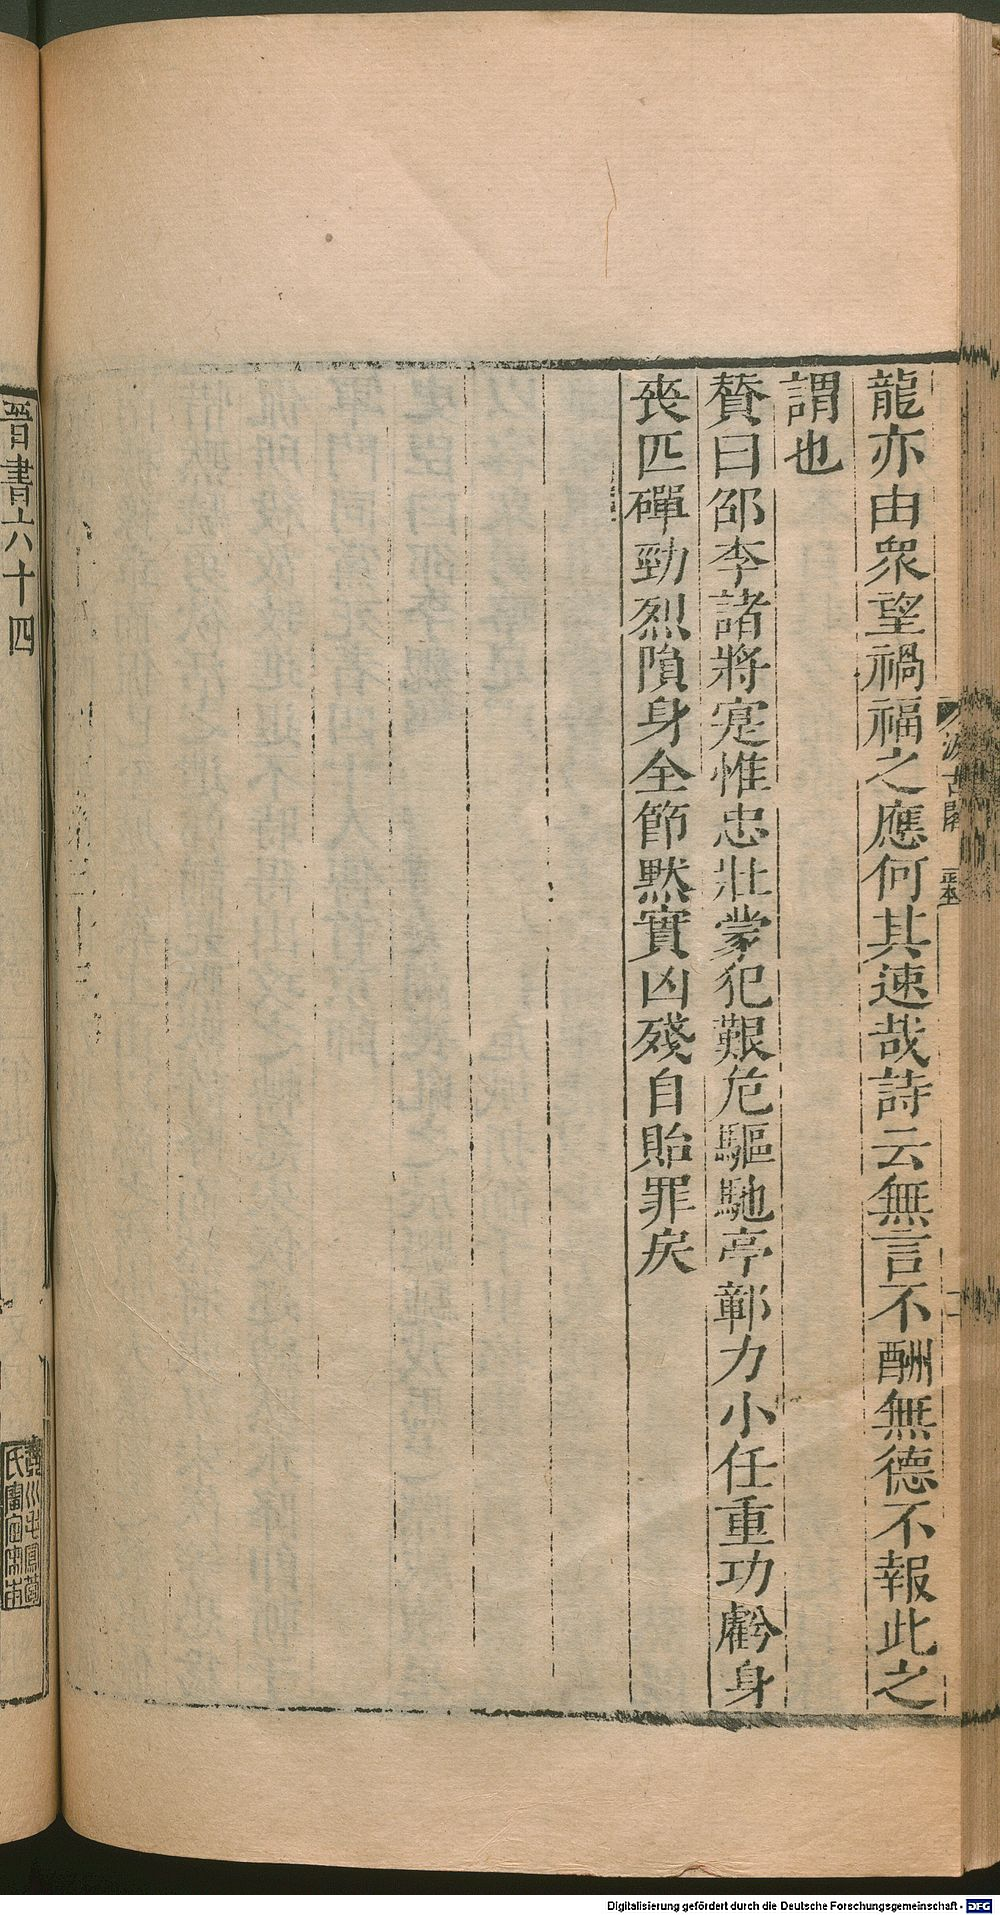 龍亦由衆望禍福之應何其速哉詩云無言不酬無德不報此之
謂也
贊曰邵李諸將寔惟忠壯蒙犯艱危驅馳亭鄣力小任重功虧身
喪匹磾勁烈隕身全節黙實凶殘自貽罪戾
晉書六十四
Digitalisierung gefördert durch die Deutsche Forschungsgemeinschaft - DFG